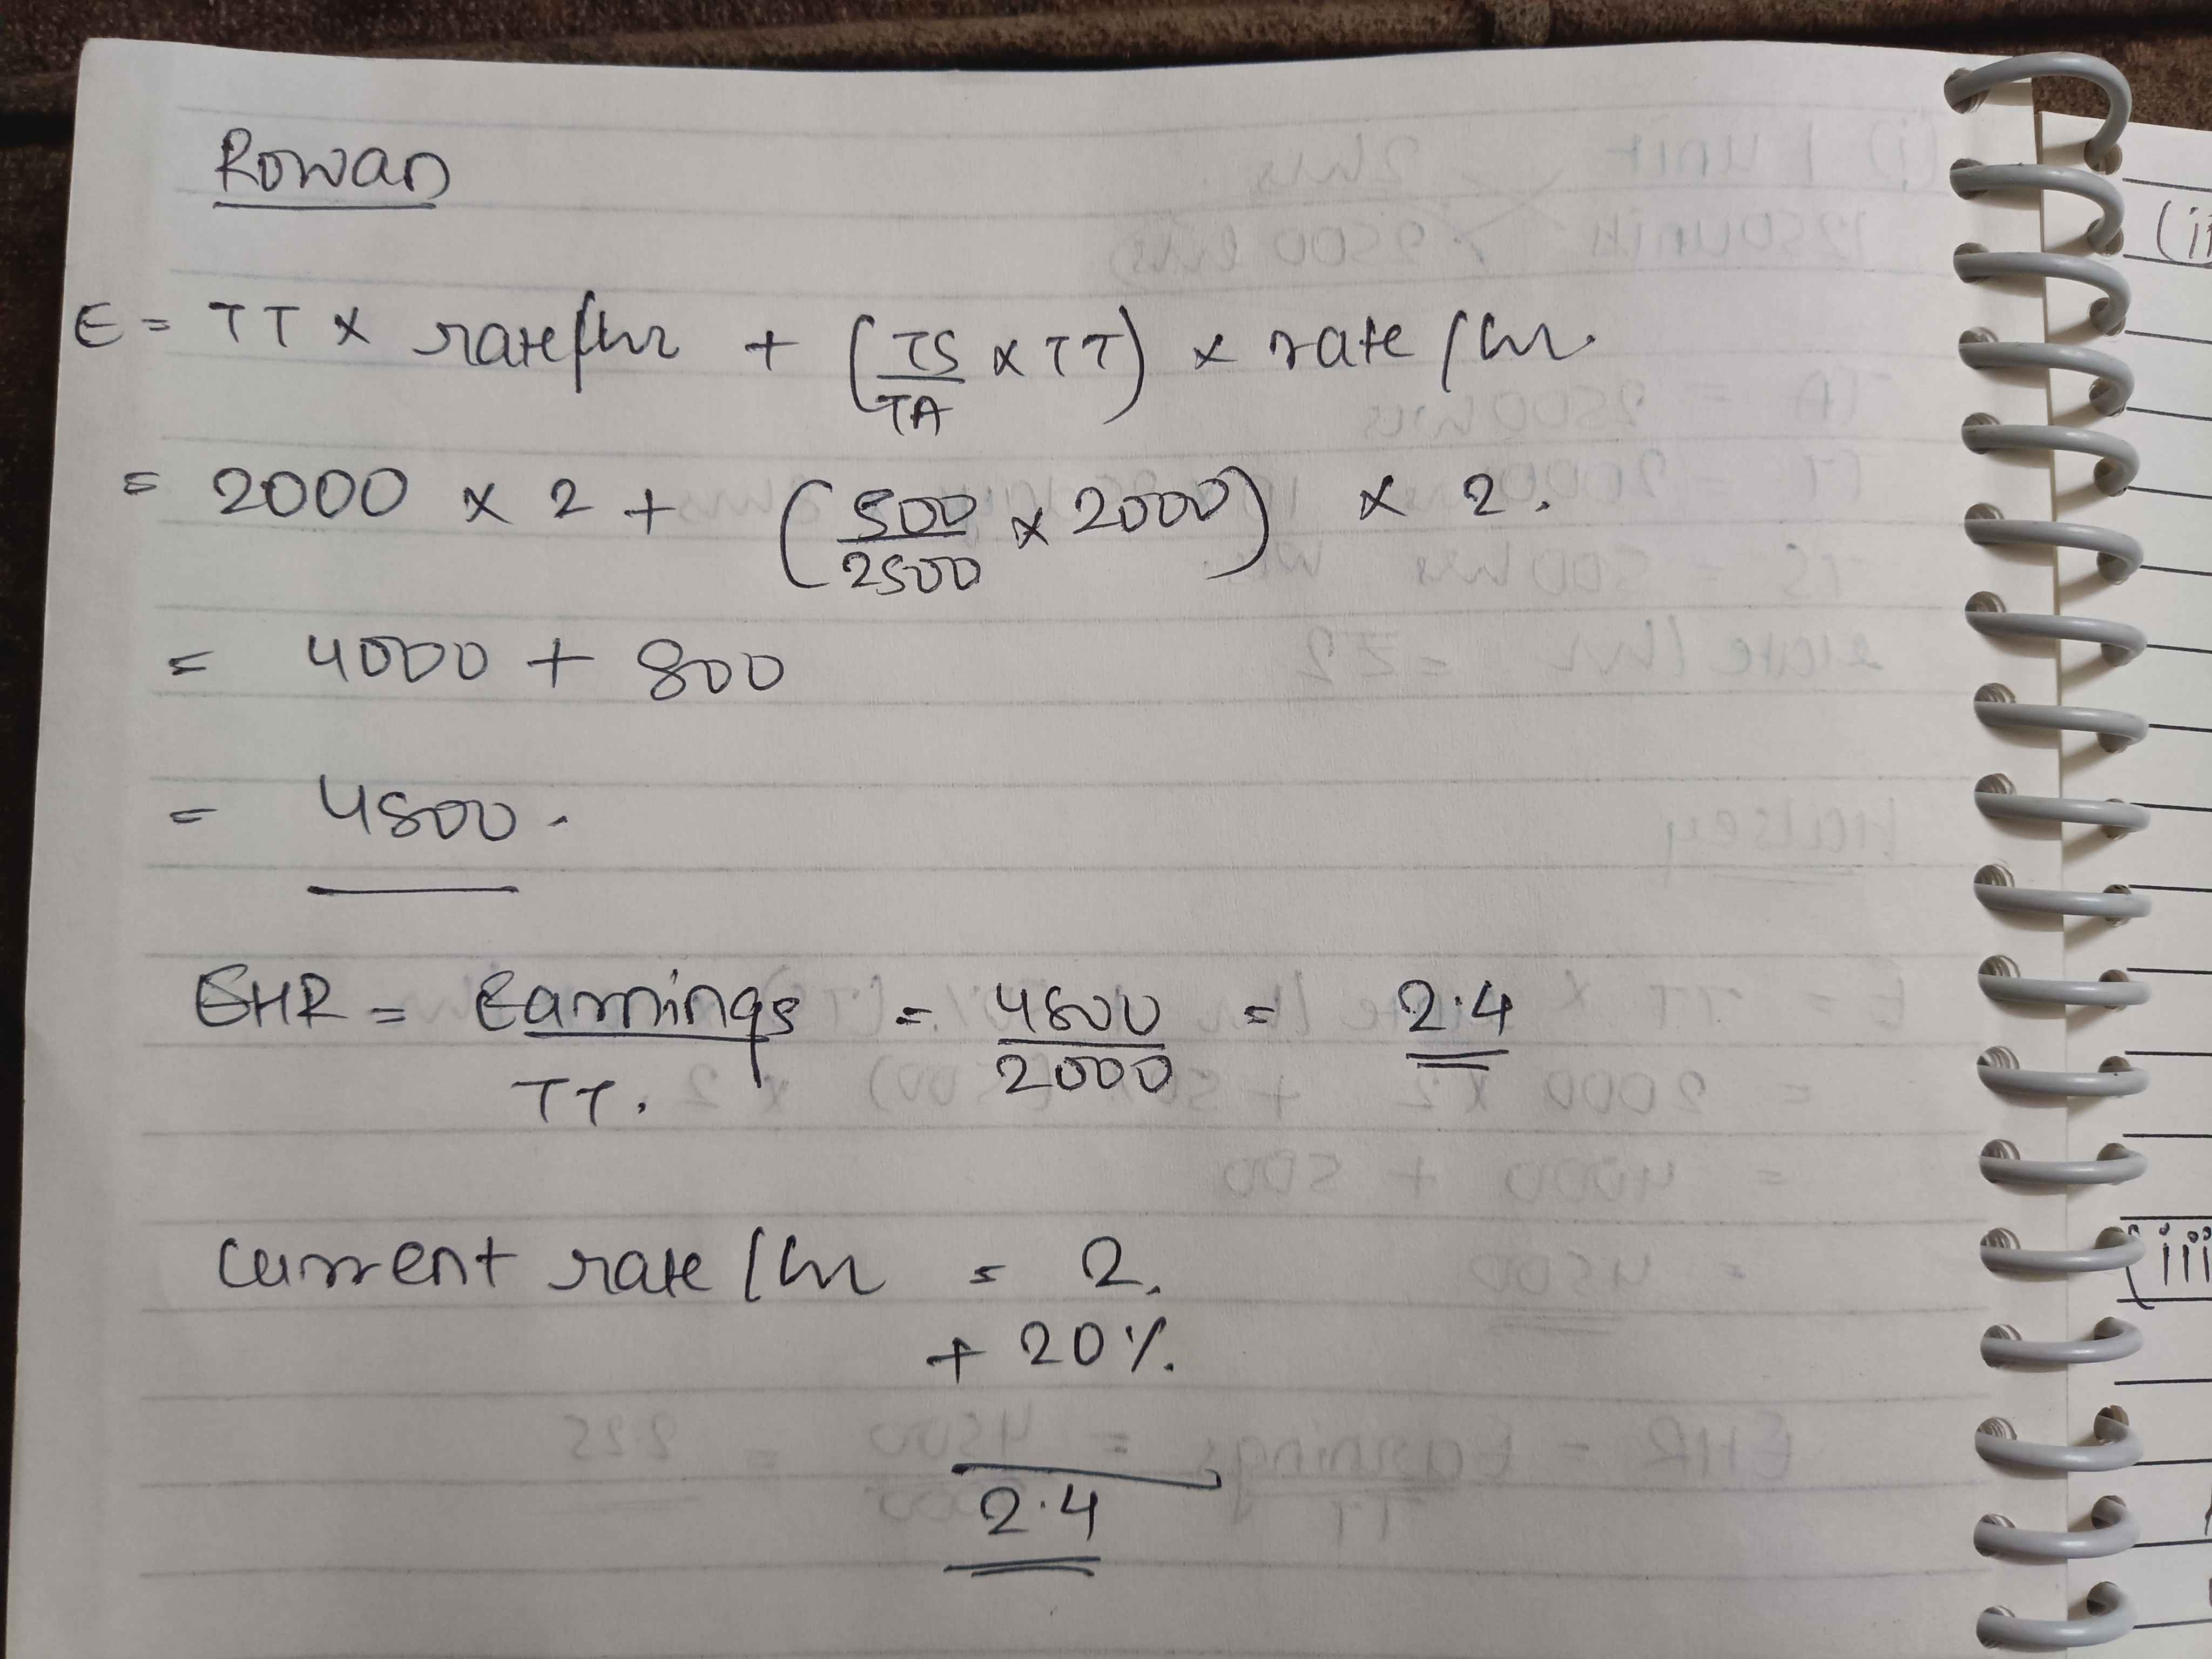 Rowan
E = TT × rate/hr + (TS/TA × TT) × rate/hr.
= 2000 × 2 + (500/2500 × 2000) × 2.
= 4000 + 800
= 4800.
EHR = Earnings/TT. = 4800/2000 = 2.4
Current rate/hr = 2.
+ 20%.
2.4
(ii
(iii